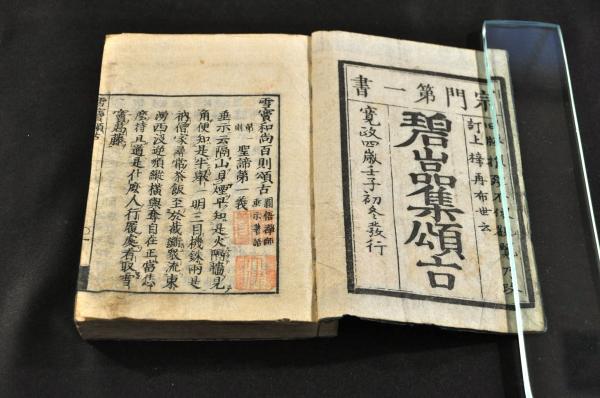 宗門第一書
訂上梓再布世云
碧嵒集頌古
寛政四歳壬子初冬發行
雪竇和尚百則頌古 圜悟禪師垂示著語
第一則 聖諦第一義
垂示云隔山見煙早知是火隔牆見
角便知是牛舉一明三目機銖兩是
衲僧家尋常茶飯至於截斷衆流東
湧西沒逆順縱橫與奪自在正當恁
麼時且道是什麼人行履處看取雪
竇葛藤